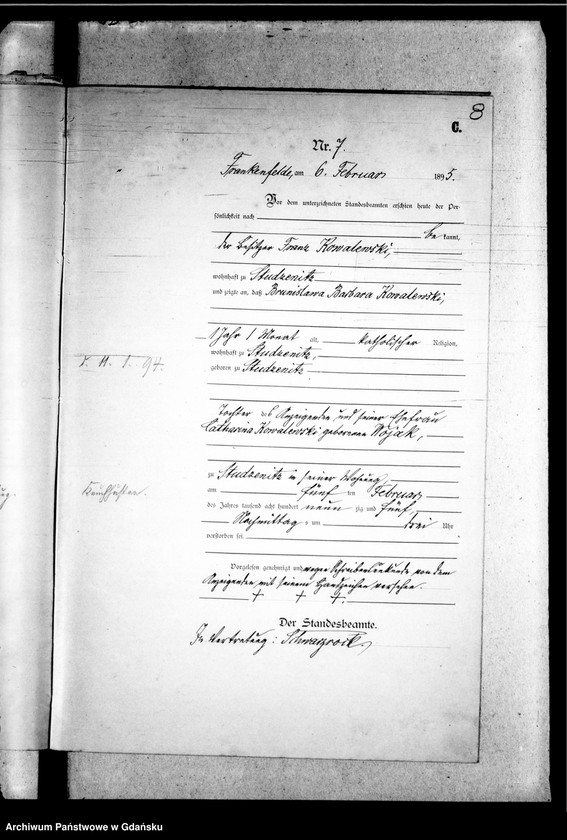 8
C.
Nr. 7.
Frankenfelde, am 6. Februar 1895.
Vor dem unterzeichneten Standesbeamten erschien heute der Per-
sönlichkeit nach
be kannt,
der Besitzer Franz Kowalewski,
wohnhaft zu Studzenitz
und zeigte an, daß Brunislawa Barbara Kowalewski,
1 Jahr 1 Monat alt, katholischer Religion,
wohnhaft zu Studzenitz,
geboren zu Studzenitz
Tochter des Anzeigenden und seiner Ehefrau
Catharina Kowalewski geborenen Wojak,
zu Studzenitz in seiner Wohung,
am fünf ten Februar
des Jahres tausend acht hundert neun zig und fünf,
Nachmittag s um drei Uhr
verstorben sei.
Vorgelesen, genehmigt und wegen Schreibensunkunde von dem
Anzeigenden mit seinem Handzeichen versehen.
+ + +.
Der Standesbeamte.
In Vertretung: Schwarzrock
1. 94.
Keuchhusten.
Archiwum Państwowe w Gdańsku